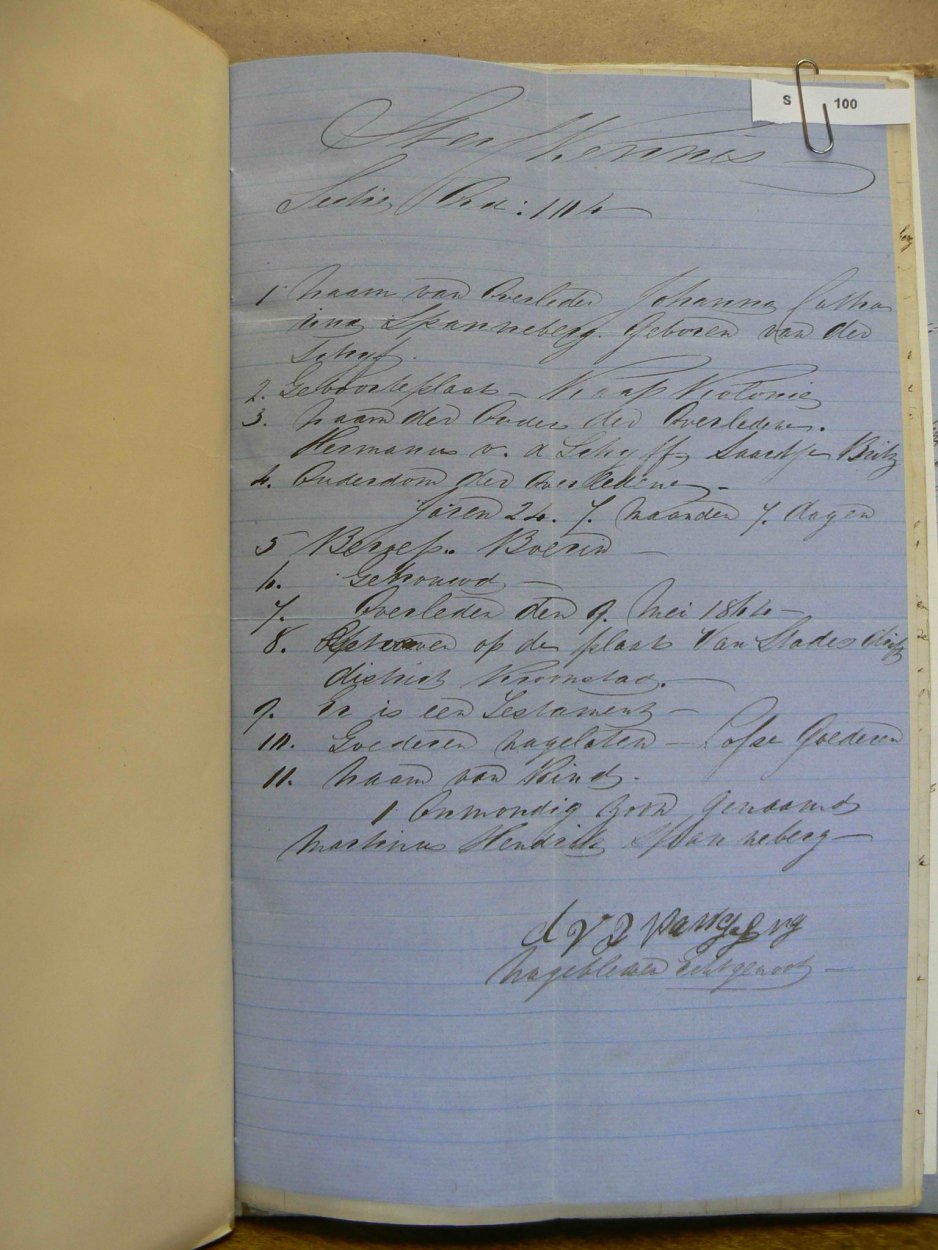 S 100
Sterf Kennis
Sectie Ord: 104
1. Naam van Overleden Johanna Catha
rina Spanneberg. Geboren van der
Schyf.
2. Geboorteplaats – Kaap Kolonie
3. Naam der Ouders der Overledene.
Hermanus v. d Schyff, Saartje Britz
4. Ouderdom der Overledene –
Jaren 24. 7. maanden 7. dagen
5 Beroep. Boerin –
6. Getrouwd –
7. Overleden den 9. Mei 1864 –
8. op de plaats Van Stades
district Kroonstad. –
9. Er is een Testament –
10. Goederen nagelaten – Losse Goederen
11. Naam van Kind.
1 Onmondig Zoon Genaamd
Martinus Hendrik Spanneberg –
Nagebleven Echtgenoot –